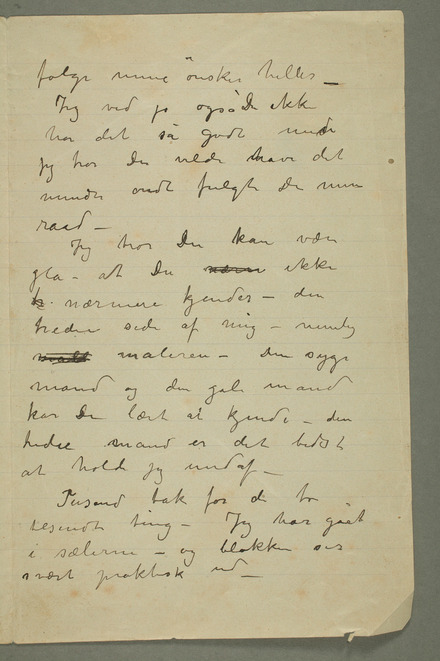 følge mine ønsker heller –
Jeg ved jo også De ikke
har det så godt men
jeg tror De vilde have det
mindre ondt fulgte De mine
raad –
Jeg tror De kan være
gla – at De ikke
nærmere kjender – den
bedre side af mig – nemlig
maleren – Den syge
mand og den gale mand
har De lært at kjende – den
bedre mand er det bedst
at holde sig undaf –
Tusend tak for de to
tesendte ting – Jeg har gået
i sælerne – og blokken ser
svært praktisk ud –